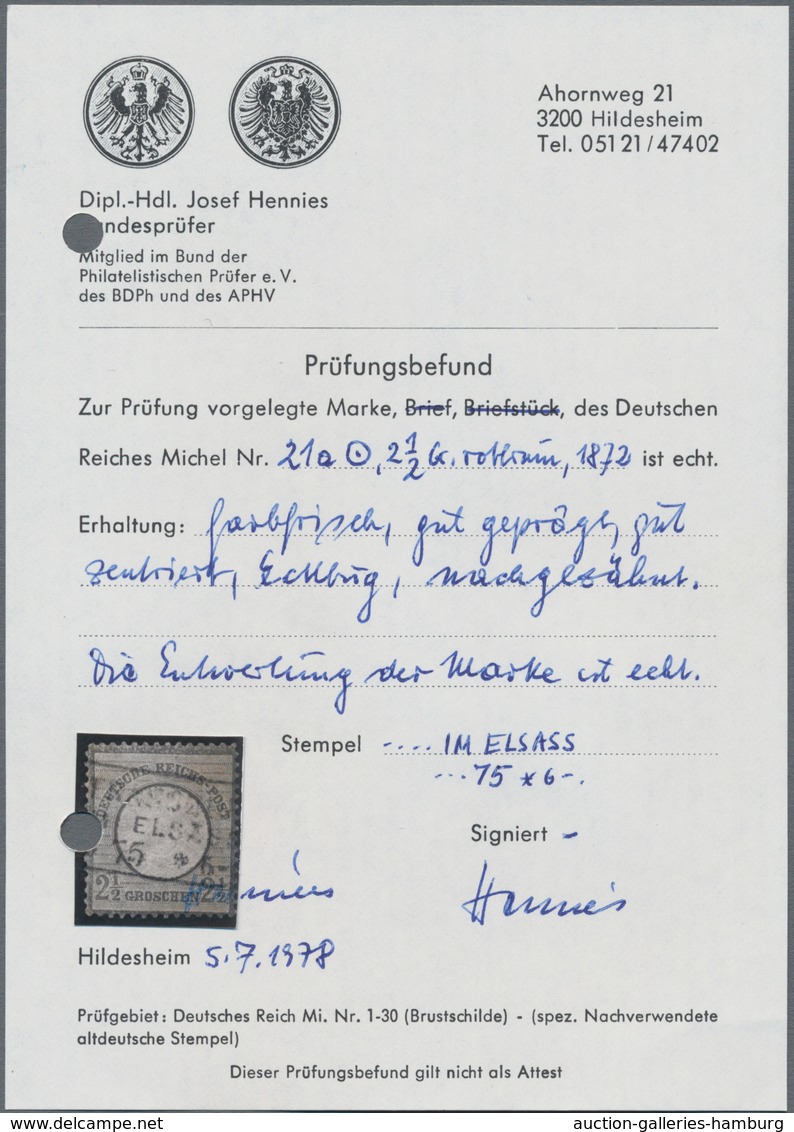 Ahornweg 21
3200 Hildesheim
Tel. 05121/47402
Dipl.-Hdl. Josef Hennies
ndesprüfer
Mitglied im Bund der
Philatelistischen Prüfer e. V.
des BDPh und des APHV
Prüfungsbefund
Zur Prüfung vorgelegte Marke, Brief, Briefstück, des Deutschen
Reiches Michel Nr. 21a ⊙, 2 1/2 Gr. rotbraun, 1872 ist echt.
Erhaltung: farbfrisch, gut geprägt, gut
zentriert, Eckbug, nachgezähnt.
Die Entwertung der Marke ist echt.
Stempel ---- IM ELSASS
--- 75 * 6-.
DEUTSCHE REICHS-POST
ELS
75 * 6-
2 1/2 GROSCHEN 2 1/2
Signiert -
Hennies
Hildesheim 5.7.1978
Prüfgebiet: Deutsches Reich Mi. Nr. 1-30 (Brustschilde) - (spez. Nachverwendete
altdeutsche Stempel)
Dieser Prüfungsbefund gilt nicht als Attest
auction-galleries-hamburg